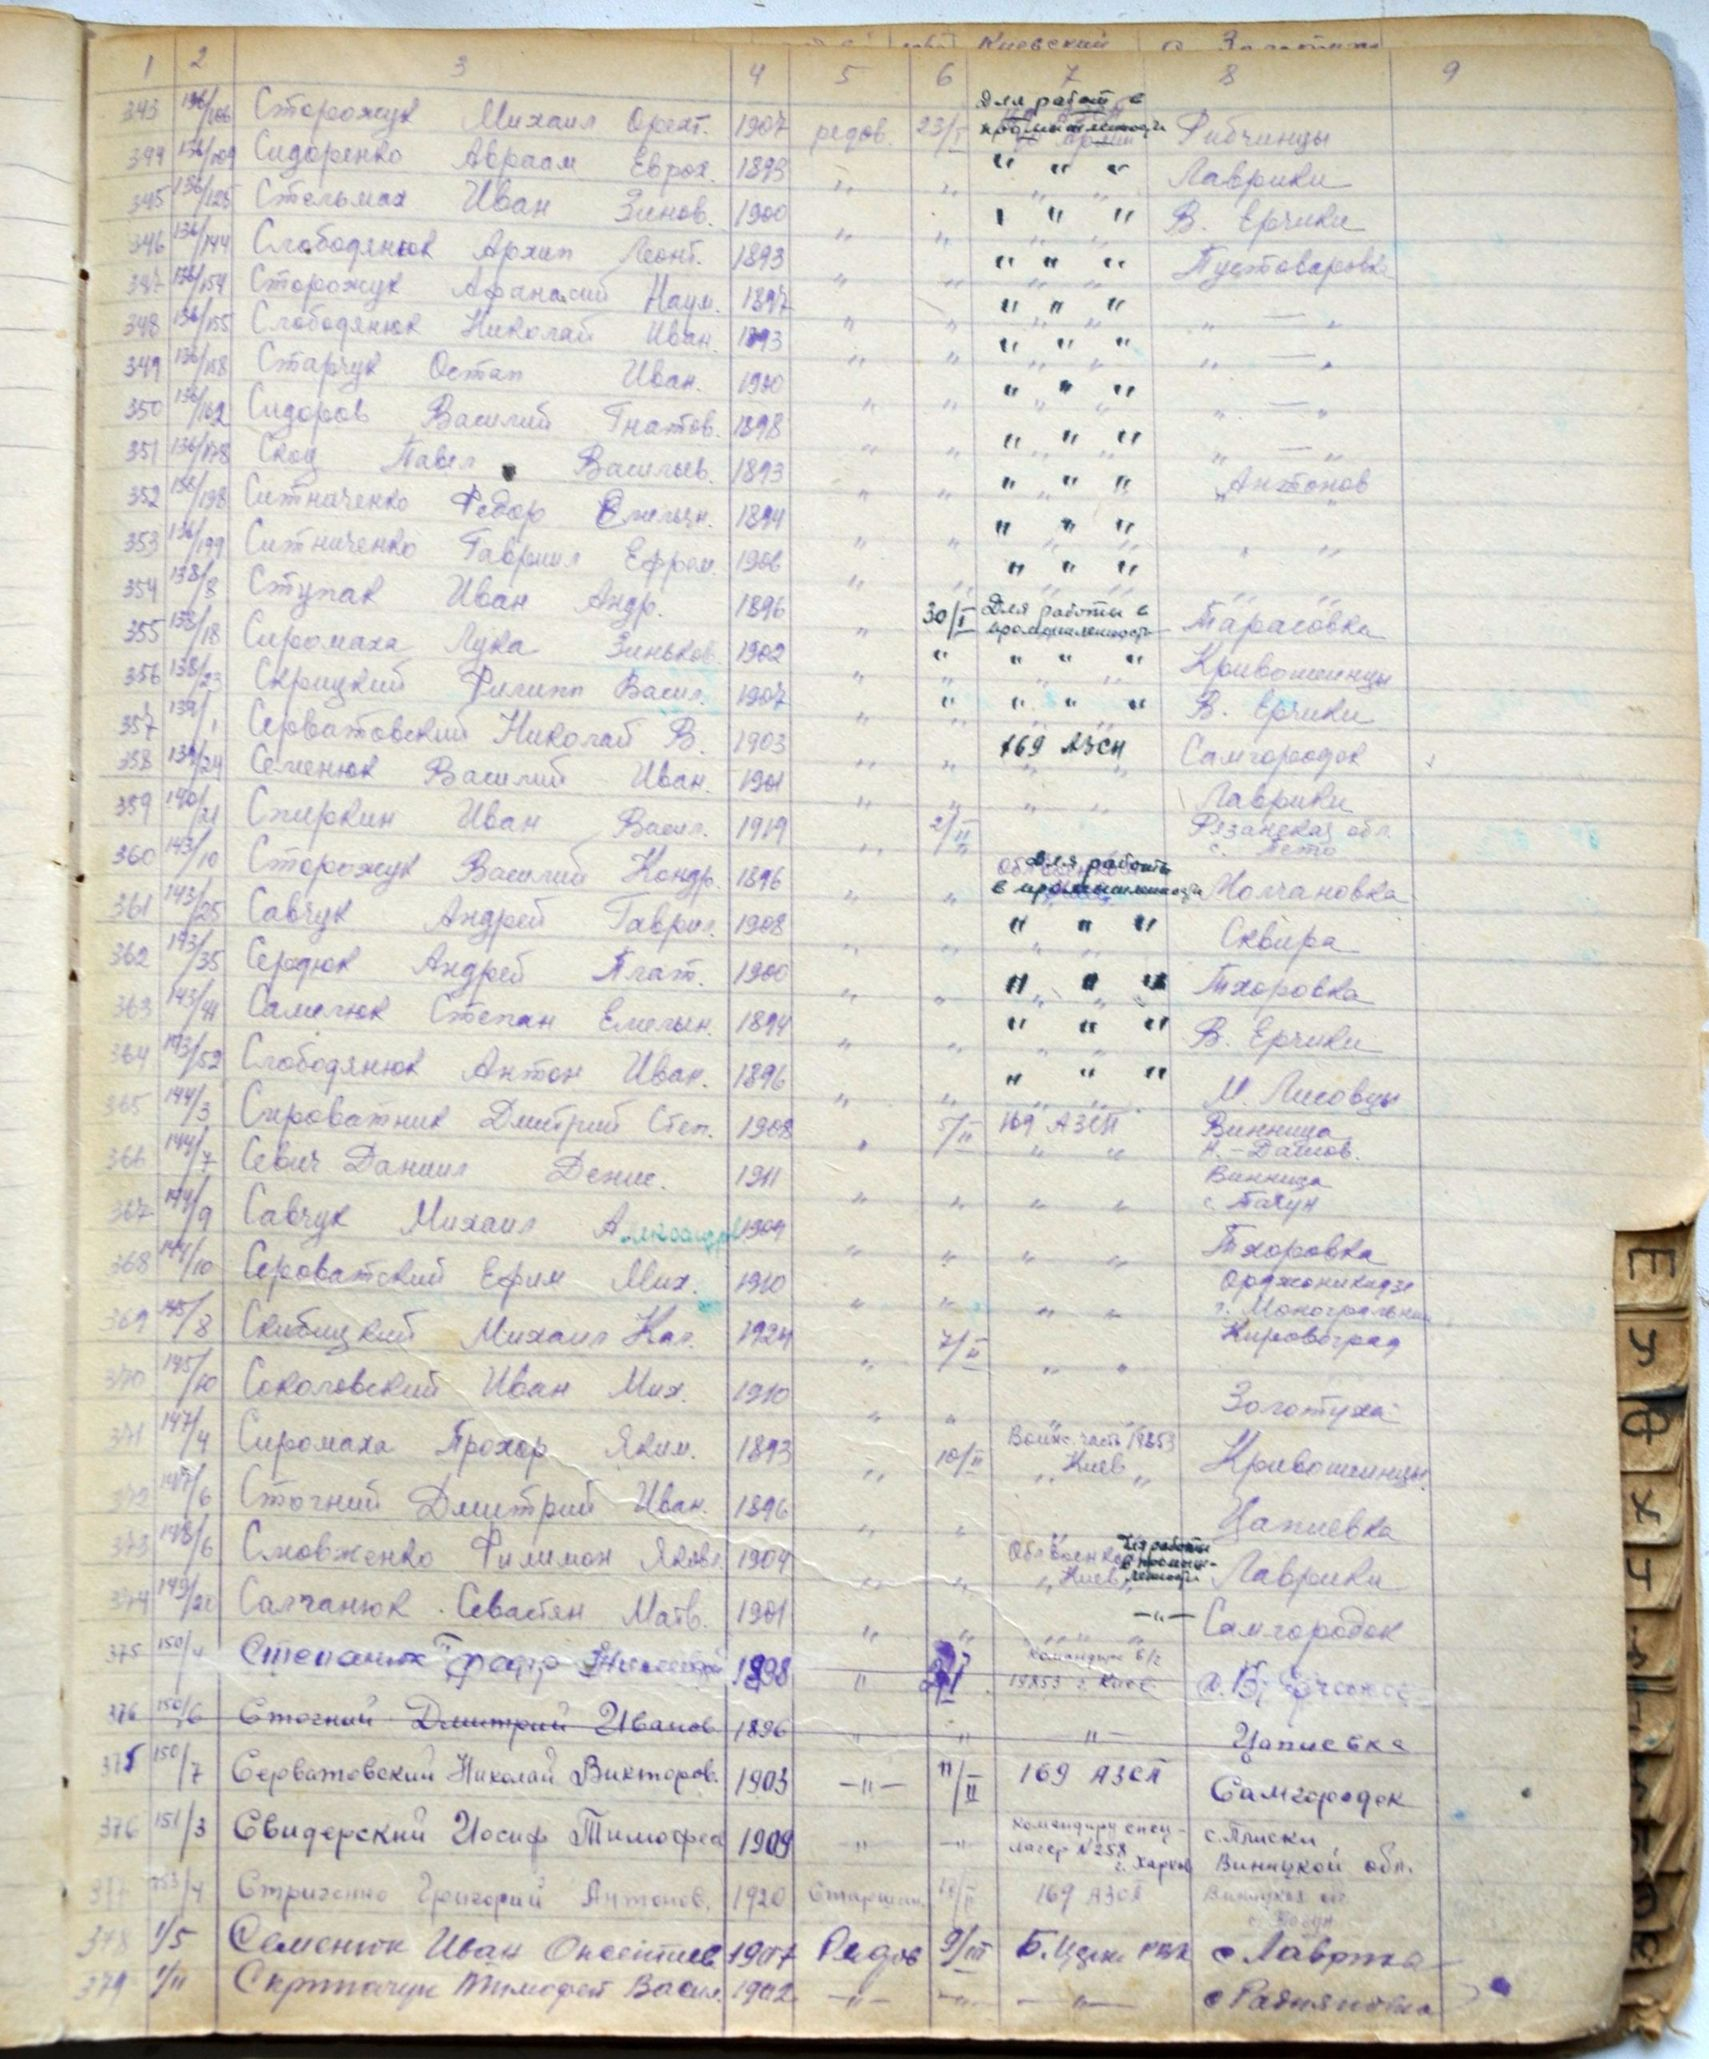 Киевский
1 2 3 4 5 6 7 8 9
343 136/106 Сторожук Михаил Орехт. 1907 редов 23/I Для работ в промышленности Рибчинцы
344 136/109 Сидоренко Авраам Еврох. 1893 " " " " " Лаврики
345 136/125 Стельмах Иван Зинов. 1900 " " " " " В. Ерчики
346 136/144 Слободянюк Архип Леонт. 1893 " " " " " Пустоваровка
347 136/154 Сторожук Афанасий Наум. 1897 " " " " " " — "
348 136/155 Слободянюк Николай Иван. 1893 " " " " " " — "
349 136/158 Старчук Остап Иван. 1900 " " " " " " — "
350 136/162 Сидоров Василий Гнатов. 1898 " " " " " " — "
351 136/178 Скоц Павел Васильев. 1893 " " " " " Антонов
352 136/198 Ситниченко Федор Емельян. 1894 " " " " " " "
353 136/199 Ситниченко Гавриил Ефрем. 1906 " " " " " " "
354 138/8 Ступак Иван Андр. 1896 " 30/I Для работы в промышленност Тарасовка
355 138/18 Сиромаха Лука Зиньков. 1902 " " " " " Кривошеинцы
356 138/23 Скрицкий Филипп Васил. 1907 " " " " " В. Ерчики
357 139/1 Серватовский Николай В. 1903 " " 169 АЗСП Самгородок
358 139/24 Семенюк Василий Иван. 1901 " " " " Лаврики
359 140/21 Спиркин Иван Васил. 1919 " 2/II Рязанская обл. с. Пето
360 143/10 Сторожук Василий Кондр. 1896 " " Для работы в промышленности Молчановка
361 143/25 Савчук Андрей Гаврил. 1908 " " " " " Сквира
362 143/35 Сердюк Андрей Плат. 1900 " " " " " Тхоровка
363 143/41 Самелюк Степан Емельян. 1894 " " " " " В. Ерчики
364 143/52 Слободянюк Антон Иван. 1896 " " " " " М. Лисовцы
365 144/3 Сироватник Дмитрий Степ. 1908 " 5/II 169 АЗСП Винница Н.-Дашов.
366 144/7 Севич Даниил Денис. 1911 " " " " Винница с.
367 144/9 Савчук Михаил Александр 1904 " " " " Тхоровка
368 144/10 Сероватский Ефим Мих. 1910 " " " " Орджоникидзе
369 145/8 Скибицкий Михаил Кал. 1924 " 7/II " " Кировоград
370 145/10 Соколовский Иван Мих. 1910 " " Золотуха
371 147/4 Сиромаха Прохор Яким. 1893 " 10/II Воинс. часть 19853 Киев Кривошеинцы
372 147/6 Стогний Дмитрий Иван. 1896 " " " " Цапиевка
373 148/6 Словженко Филимон Яковл 1904 " " Облвоенком Киев Для работы в промышленности Лаврики
374 149/20 Салчанюк Севастян Матв. 1901 " " " " —"— Самгородок
375 150/4 Степанюк 1898 " Командиру в/ч 19853 г. Киев
376 150/6 Стогний Дмитрий Иванов 1896 " " —"— Цапиевка
375 150/7 Серватовский Николай Викторов. 1903 —"— 11/II 169 АЗСП Самгородок
376 151/3 Свидерский Иосиф Тимофеев 1909 " —"— Командиру спец-лагер N 258 г. Харков с. Плиски Винницкой обл.
377 153/4 Стриженко Григорий Антонов. 1920 Старшин. 169 АЗСП
378 1/5 Семенюк Иван Онсентиев 1907 Редов 9/III Б. Церк. РВК с Лаврики
379 1/11 Скрипачук Тимофей Васил. 1902 —"— —"— —"—
Е
У
Ф
Х